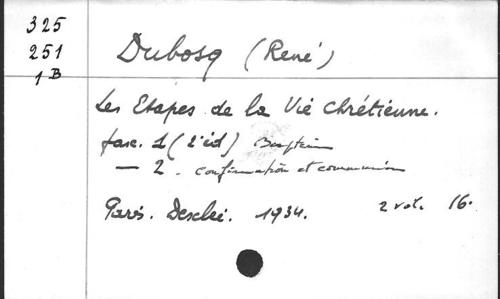 325
251
1 B
Dubosq (René)
Les Etapes de la Vie Chrétienne.
fasc. 1 (2e éd) Baptême
— 2. confirmation et communion
Paris. Desclée. 1934. 2 vol. 16.